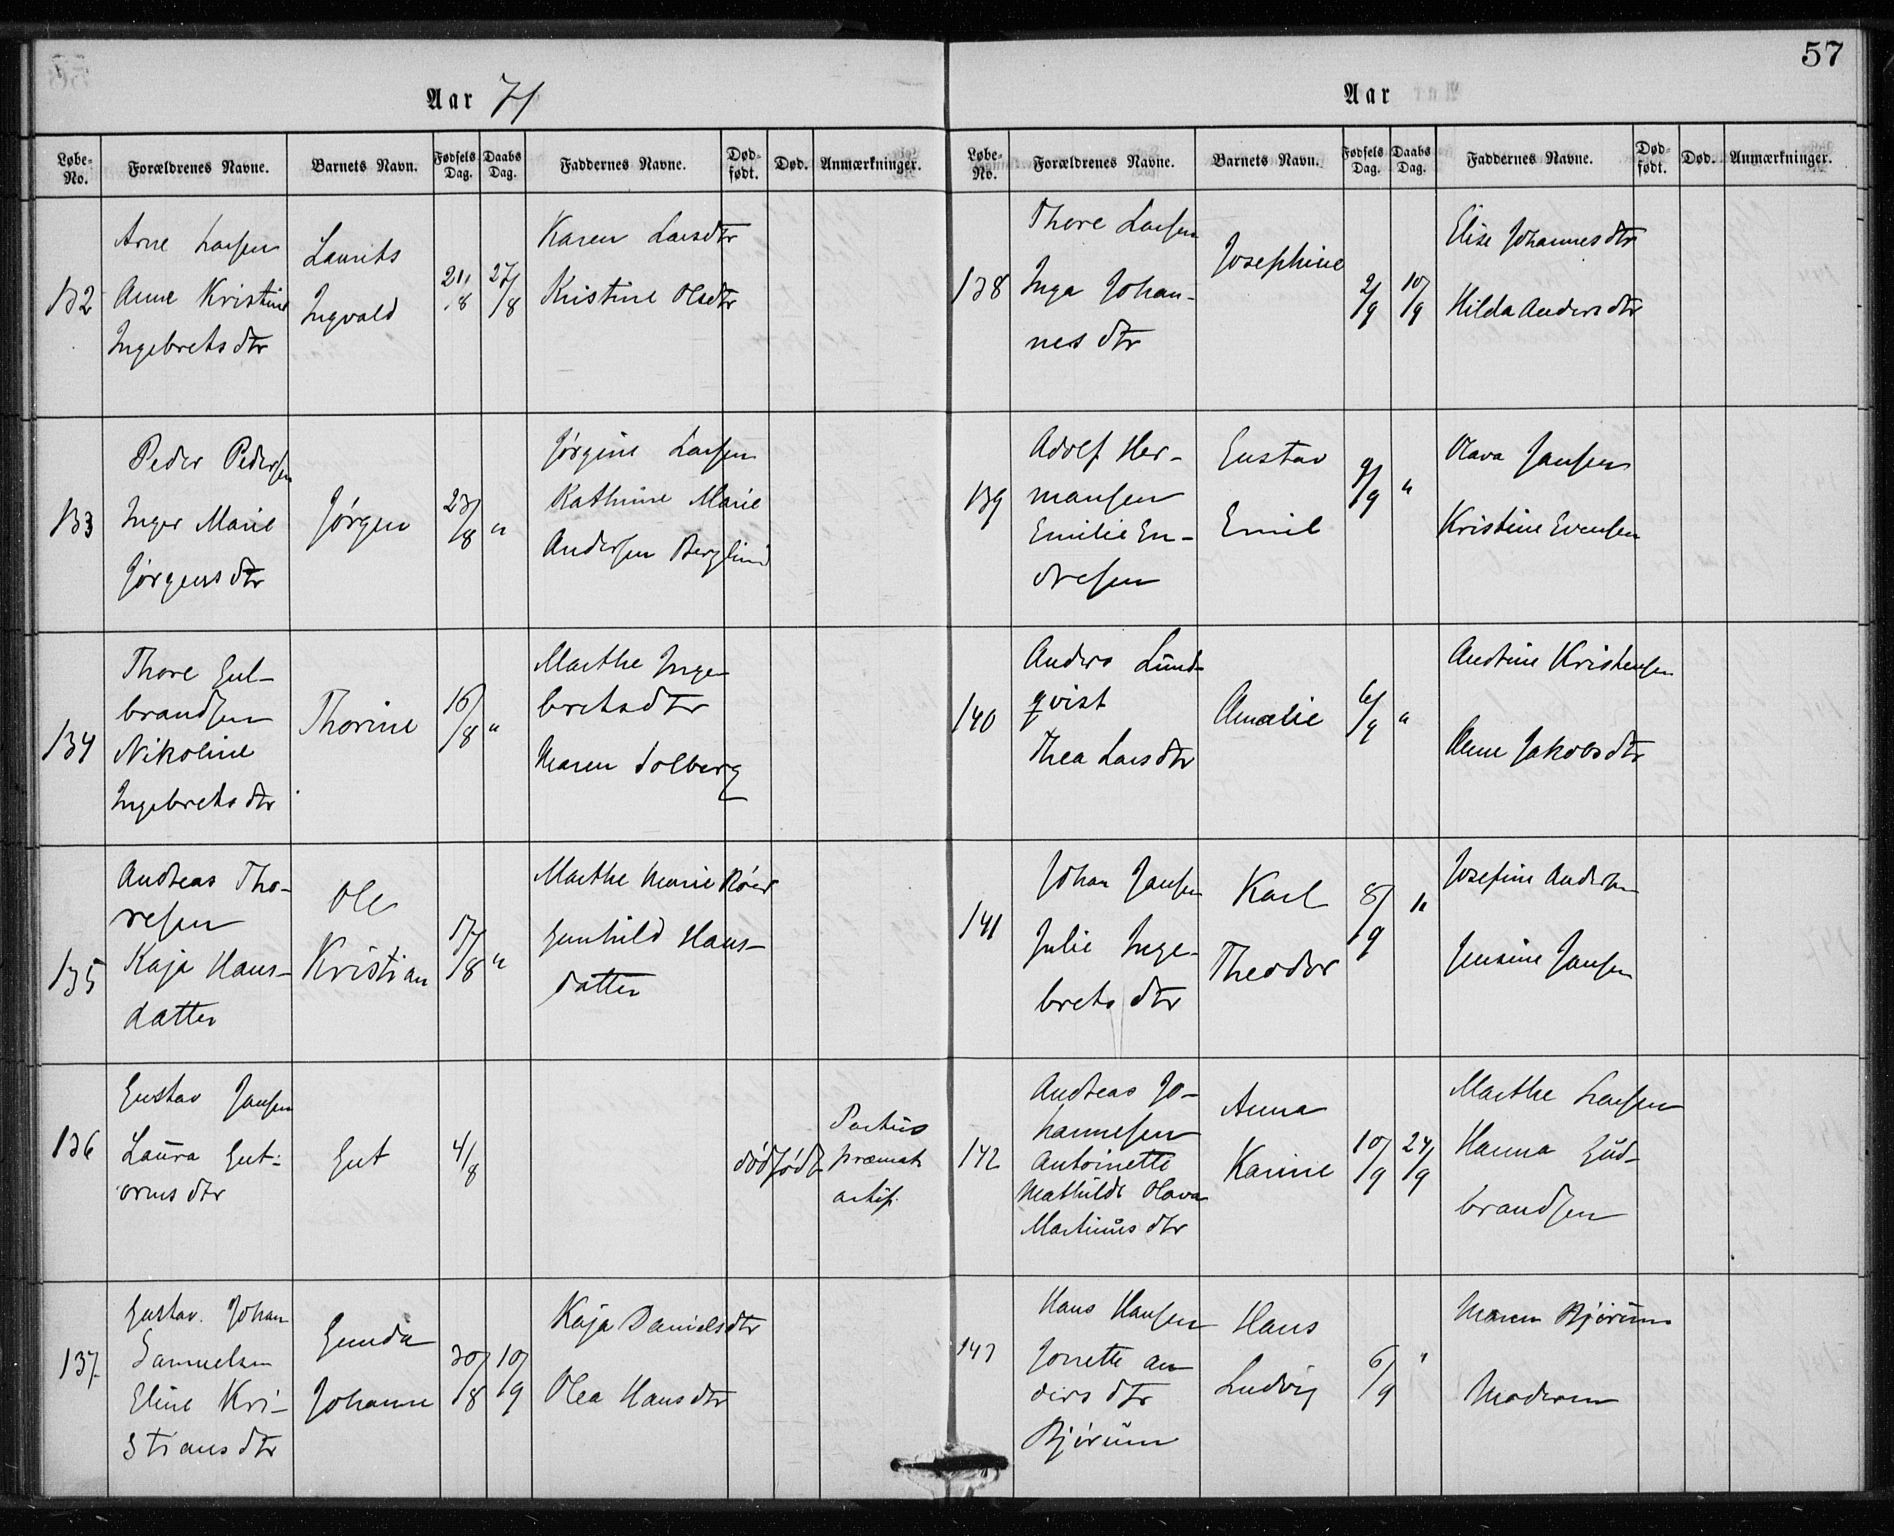 57
Aar 71
Løbe-No.
Forældrenes Navne.
Barnets Navn.
Fødsels Dag.
Daabs Dag.
Faddernes Navne.
Død-født.
Død.
Anmærkninger.
132
Arne Larsen
Anne Kristine
Ingebretsdtr
Laurits
Ingvald
21/8
27/8
Karen Larsdtr
Kristine Olsdtr
133
Peder Pedersen
Inger Marie
Jørgensdtr
Jørgen
23/8
"
Jørgine Larsen
Kathrine Marie
Andersen Berglund
134
Thore Gul-
brandsen
Nikoline
Ingebretsdtr
Thorine
16/8
"
Marthe Inge-
bretsdtr
Maren Solberg
135
Andreas Tho-
resen
Kaja Hans-
datter
Ole
Kristian
17/8
"
Marthe Marie
Gunhild Hans-
datter
136
Gustav Jansen
Laura Gut-
ormsdtr
Gut
4/8
dødfødt
Partus
præmat.
artif.
137
Gustav Johan
Samuelsen
Eline Kri-
stiansdtr
Gunda
Johanne
30/8
10/9
Kaja Danielsdtr
Olea Hansdtr
Aar
Løbe-No.
Forældrenes Navne.
Barnets Navn.
Fødsels Dag.
Daabs Dag.
Faddernes Navne.
Død-født.
Død.
Anmærkninger.
138
Thore Larsen
Inga Johan-
nesdtr
Josephine
2/9
10/9
Elise Johannesdtr
Hilda Andersdtr
139
Adolf Her-
mansen
Emilie En-
dresen
Gustav
Emil
9/9
"
Olava Jansen
Kristine Evensen
140
Anders Lund-
qvist
Thea Larsdtr
Amalie
6/9
"
Andrine Kristensen
Anne Jakobsdtr
141
Johan Jansen
Julie Inge-
bretsdtr
Karl
Theodor
8/9
"
Josefine Andersen
Jensine Jansen
142
Andreas Jo-
hannesen
Antoinette
Mathilde Olava
Martinusdtr
Anna
Karine
10/9
24/9
Marthe Larsen
Hanna Gud-
brandsen
143
Hans Hansen
Jonette An-
dersdtr
Bjørum
Hans
Ludvig
6/9
"
Maren Bjørum
Moderen